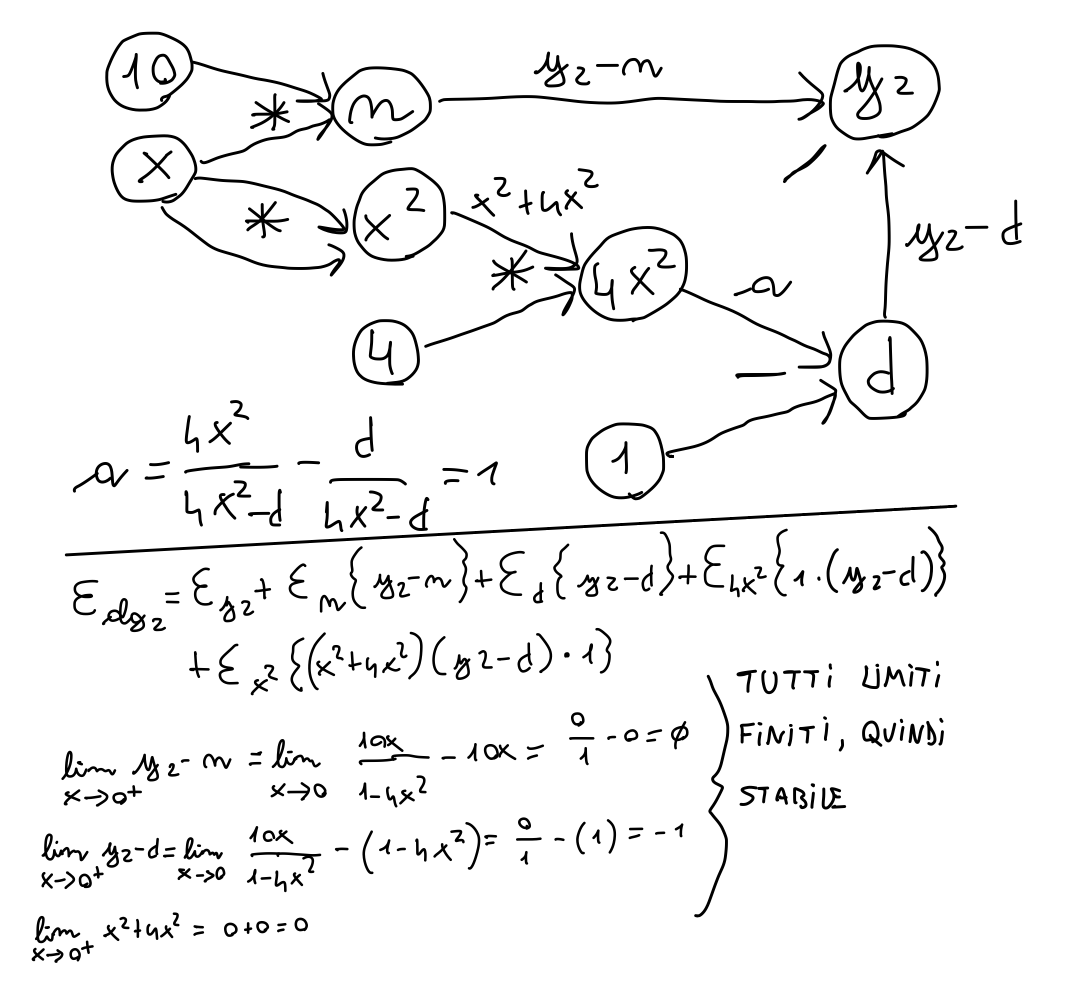 10
*
n
y₂-n
y₂
x
*
x²
x²+4x²
*
4x²
a
4
—
d
/
y₂-d
1
a = 4x²/(4x²-d) - d/(4x²-d) = 1
ε_dy₂ = ε_y₂ + ε_n{y₂-n} + ε_d{y₂-d} + ε_4x²{1·(y₂-d)}
+ ε_x²{(x²+4x²)(y₂-d)·1}
lim x→0⁺ y₂-n = lim x→0 10x/(1-4x²) - 10x = 0/1 - 0 = ∅
lim x→0⁺ y₂-d = lim x→0 10x/(1-4x²) - (1-4x²) = 0/1 - (1) = -1
lim x→0⁺ x²+4x² = 0+0=0
} TUTTI LIMITI
FINITI, QUINDI
STABILE